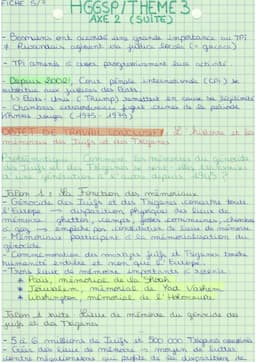 FICHE 5/7
HGGSP/THEME 3
AXE 2 (SUITE)
- Bourreaux ont accordé une grande importance au TPI
≠ Rwandais agissent via justice locale (= gacaca)
- TPI amenés à cesser progressivement leur activité.
- Depuis 2002: Cour pénale internationale (CPI) se
substitue aux justices des États
↳ États-Unis (Trump) remettent en cause sa légitimité
↳ Chambres extraordinaires jugent crimes de la période
Khmers rouges (1975-1979)
OBJET DE TRAVAIL CONCLUSIF: L'histoire et les
mémoires des Juifs et des Tsiganes
Problématique: Comment les mémoires du génocide
des Juifs et des Tsiganes se sont-elles transmises
d'une génération à l'autre depuis 1945?
Jalon 1: La fonction des mémoriaux
- Génocide des Juifs et des Tsiganes concerne toute
l'Europe → disparition physique des lieux de
mémoire: ghettos, camps, fosses communes, chambres
à gaz → empêche pas constitution de lieux de mémoire
- Mémoriaux participent à la mémorialisation du
génocide.
- Commémoration des martyrs juifs et Tsiganes touche
humanité entière et non que l'Europe.
- Trois lieux de mémoire importants à retenir:
* Paris, mémorial de la Shoah
* Jérusalem, mémorial de Yad Vashem
* Washington, mémorial de l'Holocauste
Jalon 1 suite: Lieux de mémoire du génocide des
juifs et des Tsiganes
- 5 à 6 millions de Juifs et 500 000 Tsiganes
- Créer des lieux de mémoire = moyen de lutter